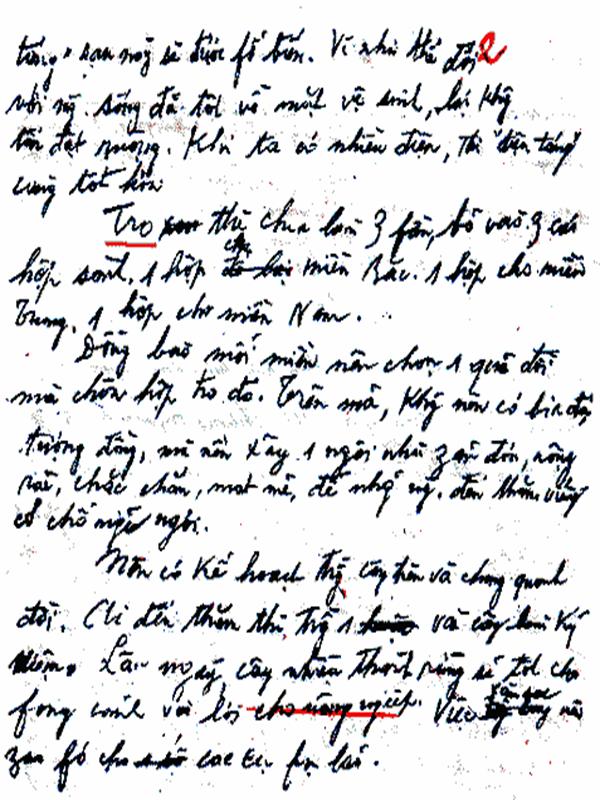 táng" sau nầy sẽ được fổ biến. Vì như thế đối 2
với ng. sống đã tốt về mặt vệ sinh, lại khg
tốn đất ruộng. Khi ta có nhiều điện, thì "điện táng"
càng tốt hơn
Tro thì chia làm 3 fần, bỏ vào 3 cái
hộp sành. 1 hộp cho miền Bắc. 1 hộp cho miền
Trung. 1 hộp cho miền Nam.
Đồng bào mỗi miền nên chọn 1 quả đồi
mà chôn hộp tro đó. Trên mả, khg nên có bia đá
tượng đồng, mà nên xây 1 ngôi nhà zản đơn, rộng
rãi, chắc chắn, mát mẻ, để nhg ng. đến thăm viếng
có chỗ nghỉ ngơi.
Nên có kế hoạch trg cây trên và chung quanh
đồi. Ai đến thăm thì trg 1 và cây làm kỷ
niệm. Lâu ngày cây nhiều thành rừng sẽ tốt cho
fong cảnh và lợi cho nông nghiệp. Việc săn sóc nên
zao fó cho các cụ fụ lão.